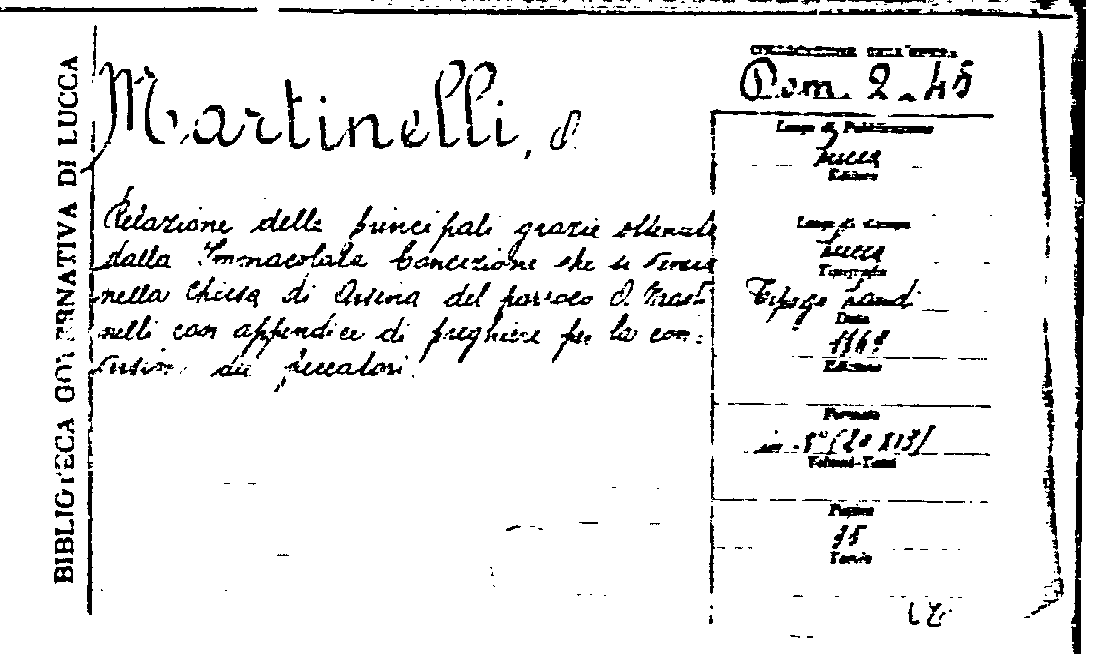 BIBLIOTECA GOVERNATIVA DI LUCCA
Martinelli, S.
Relazione delle principali grazie ottenute
dalla Immacolata Concezione che si venera
nella Chiesa di Arsina del parroco S. Marti
nelli con appendice di preghiere per la con=
versione dei peccatori.
COLLOCAZIONE DELL'OPERA
Dom. 2-45
Luogo di Pubblicazione
Lucca
Editore
Luogo di Stampa
Lucca
Tipografia
Tipogr Landi
Data
Edizione
Formato
Volumi-Tomi
Pagine
Tavole